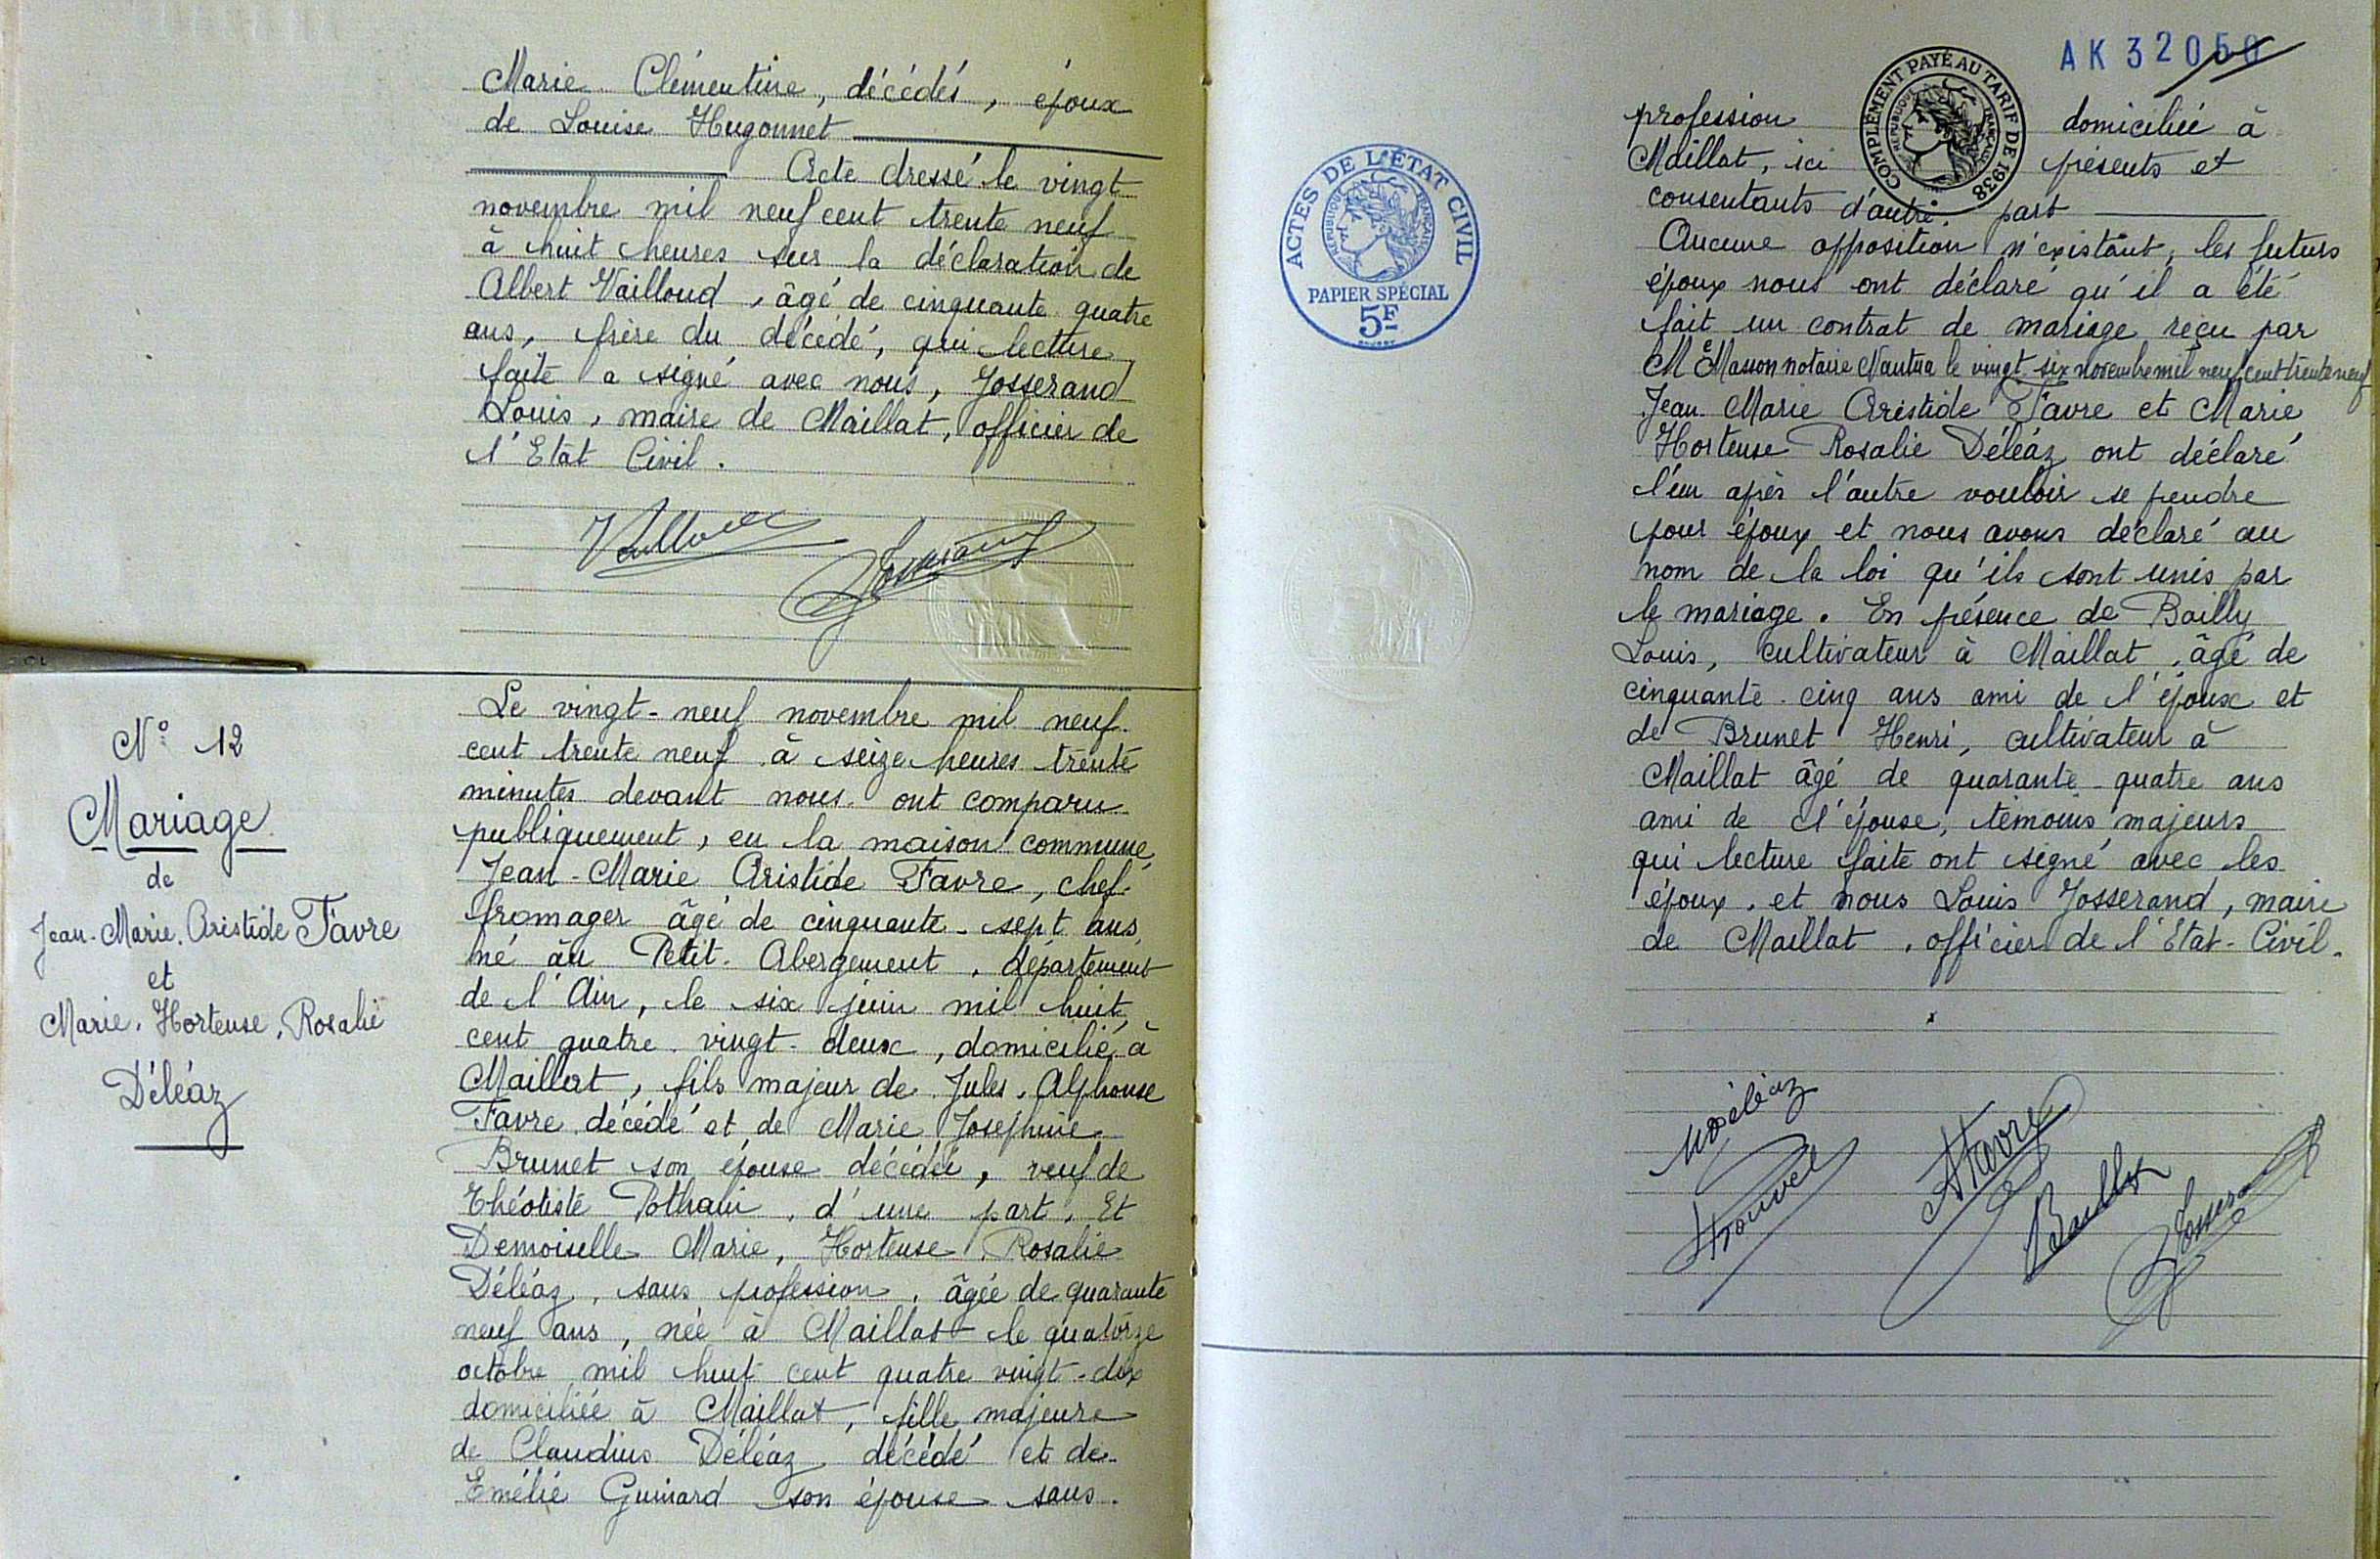 Marie Clémentine, décédés, époux
de Louise Hugonnet
Acte dressé le vingt
novembre mil neuf cent trente neuf
à huit heures sur la déclaration de
Albert Vailloud, âgé de cinquante quatre
ans, frère du décédé, qui lecture
faite a signé avec nous, Josserand
Louis, maire de Maillat, officier de
l'Etat Civil.
N° 12
Mariage
de
Jean-Marie, Aristide Favre
et
Marie, Hortense, Rosalie
Déléaz
Le vingt-neuf novembre mil neuf
cent trente neuf à seize heures trente
minutes devant nous ont comparu
publiquement, en la maison commune,
Jean-Marie Aristide Favre, chef
fromager âgé de cinquante-sept ans
né au Petit-Abergement, département
de l'Ain, le six juin mil huit
cent quatre-vingt-deux, domicilié à
Maillat, fils majeur de Jules, Alphonse
Favre décédé et de Marie Josephine
Brunet son épouse décédée, veuf de
Théotiste d'une part. Et
Demoiselle Marie, Hortense, Rosalie
Déléaz, sans profession, âgée de quarante
neuf ans, née à Maillat le quatorze
octobre mil huit cent quatre vingt-dix
domiciliée à Maillat, fille majeure
de Claudius Déléaz décédé et de
Emélie Guinard son épouse sans
AK 32050
profession domiciliée à
Maillat, ici présents et
consentants d'autre part
COMPLÉMENT PAYÉ AU TARIF DE 1938
RÉPUBLIQUE FRANÇAISE
ACTES DE L'ÉTAT CIVIL
RÉPUBLIQUE FRANÇAISE
PAPIER SPÉCIAL
5F
Aucune opposition n'existant, les futurs
époux nous ont déclaré qu'il a été
fait un contrat de mariage reçu par
Me Masson notaire Nantua le vingt-six novembre mil neuf cent trente neuf
Jean Marie Aristide Favre et Marie
Hortense Rosalie Déléaz ont déclaré
l'un après l'autre vouloir se prendre
pour époux et nous avons déclaré au
nom de la loi qu'ils sont unis par
le mariage. En présence de Bailly
Louis, cultivateur à Maillat, âgé de
cinquante-cinq ans ami de l'époux et
de Brunet Henri, cultivateur à
Maillat âgé de quarante-quatre ans
ami de l'épouse, témoins majeurs
qui lecture faite ont signé avec les
époux, et nous Louis Josserand, maire
de Maillat, officier de l'Etat-Civil.
Déléaz
AFavre
Josserand